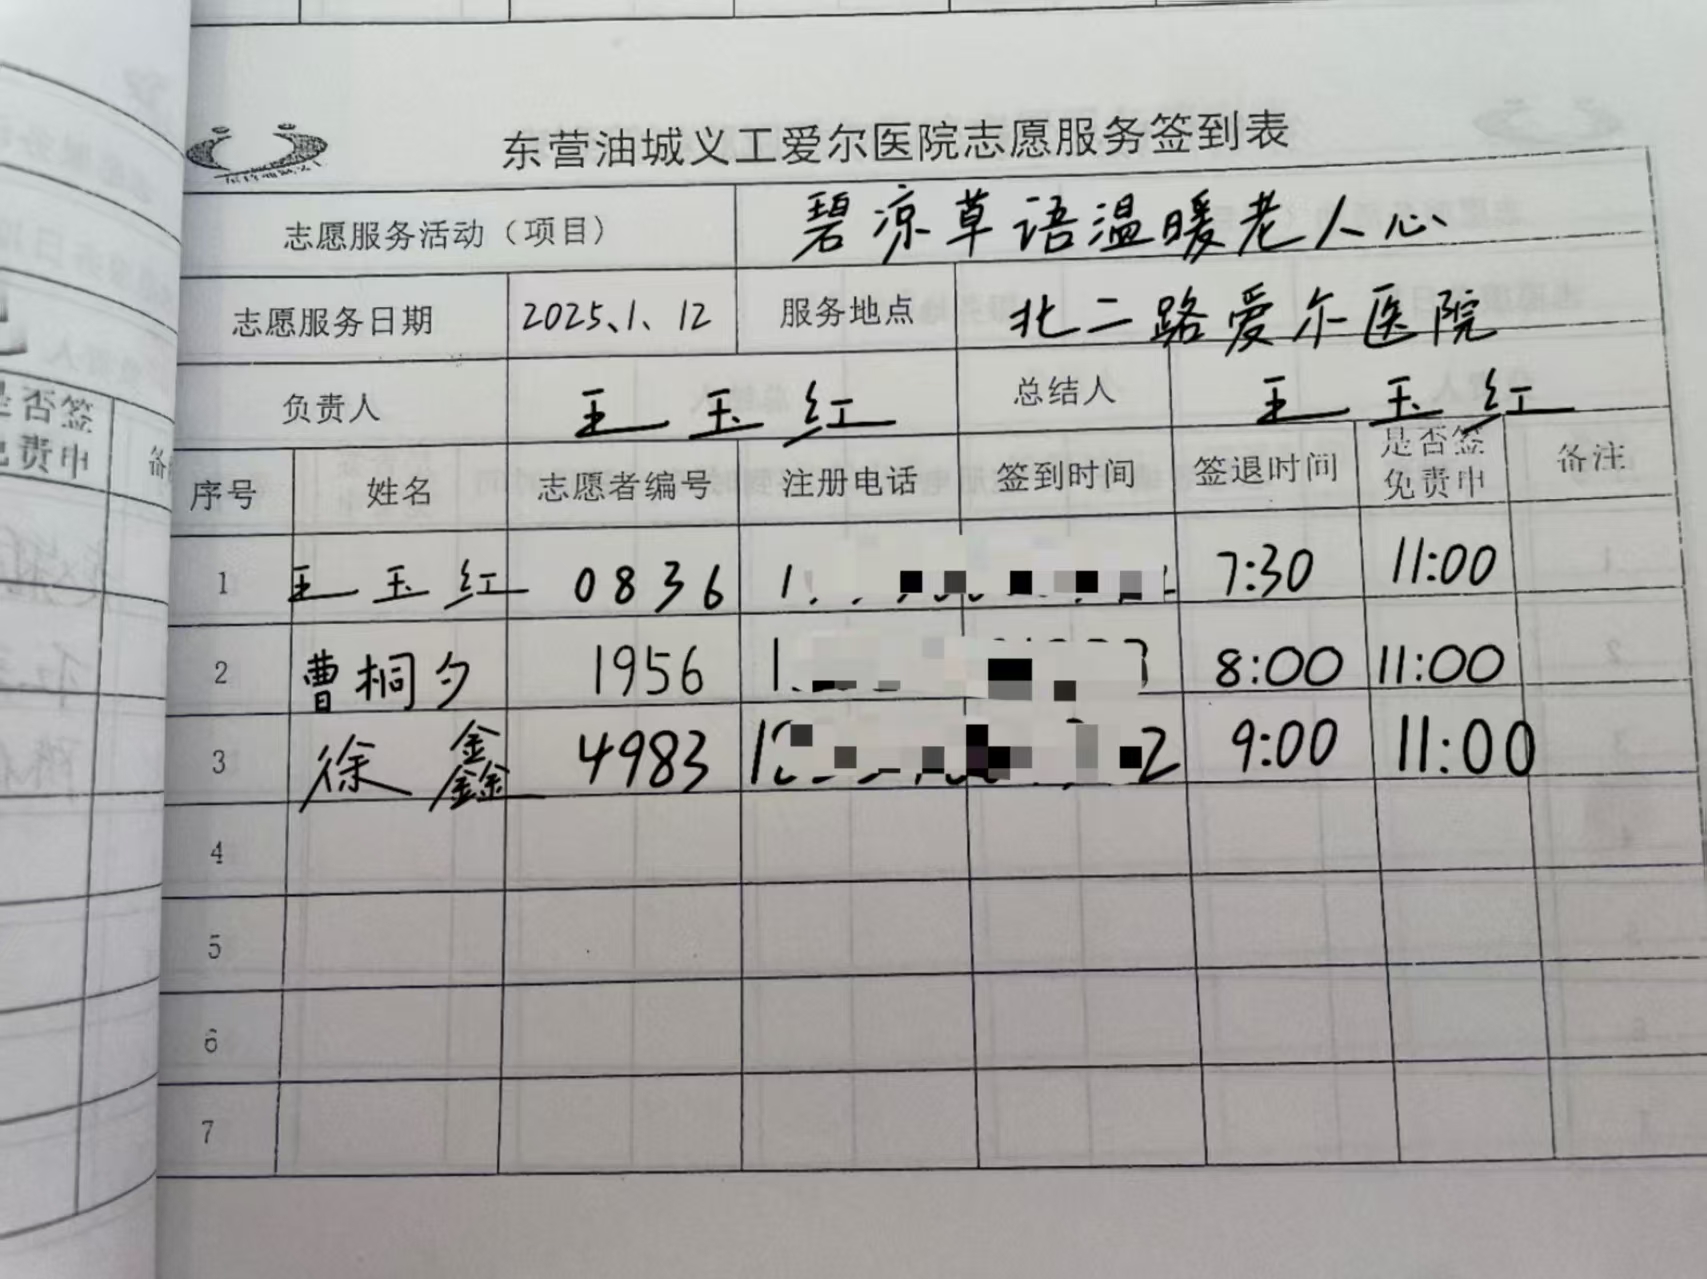 东营油城义工爱尔医院志愿服务签到表
志愿服务活动（项目） 碧凉草语温暖老人心
志愿服务日期 2025、1、12 服务地点 北二路爱尔医院
负责人 王玉红 总结人 王玉红
序号 姓名 志愿者编号 注册电话 签到时间 签退时间 是否签免责申 备注
1 王玉红 0836 7:30 11:00
2 曹桐夕 1956 8:00 11:00
3 徐鑫 4983 9:00 11:00
4
5
6
7
是否签
免责申